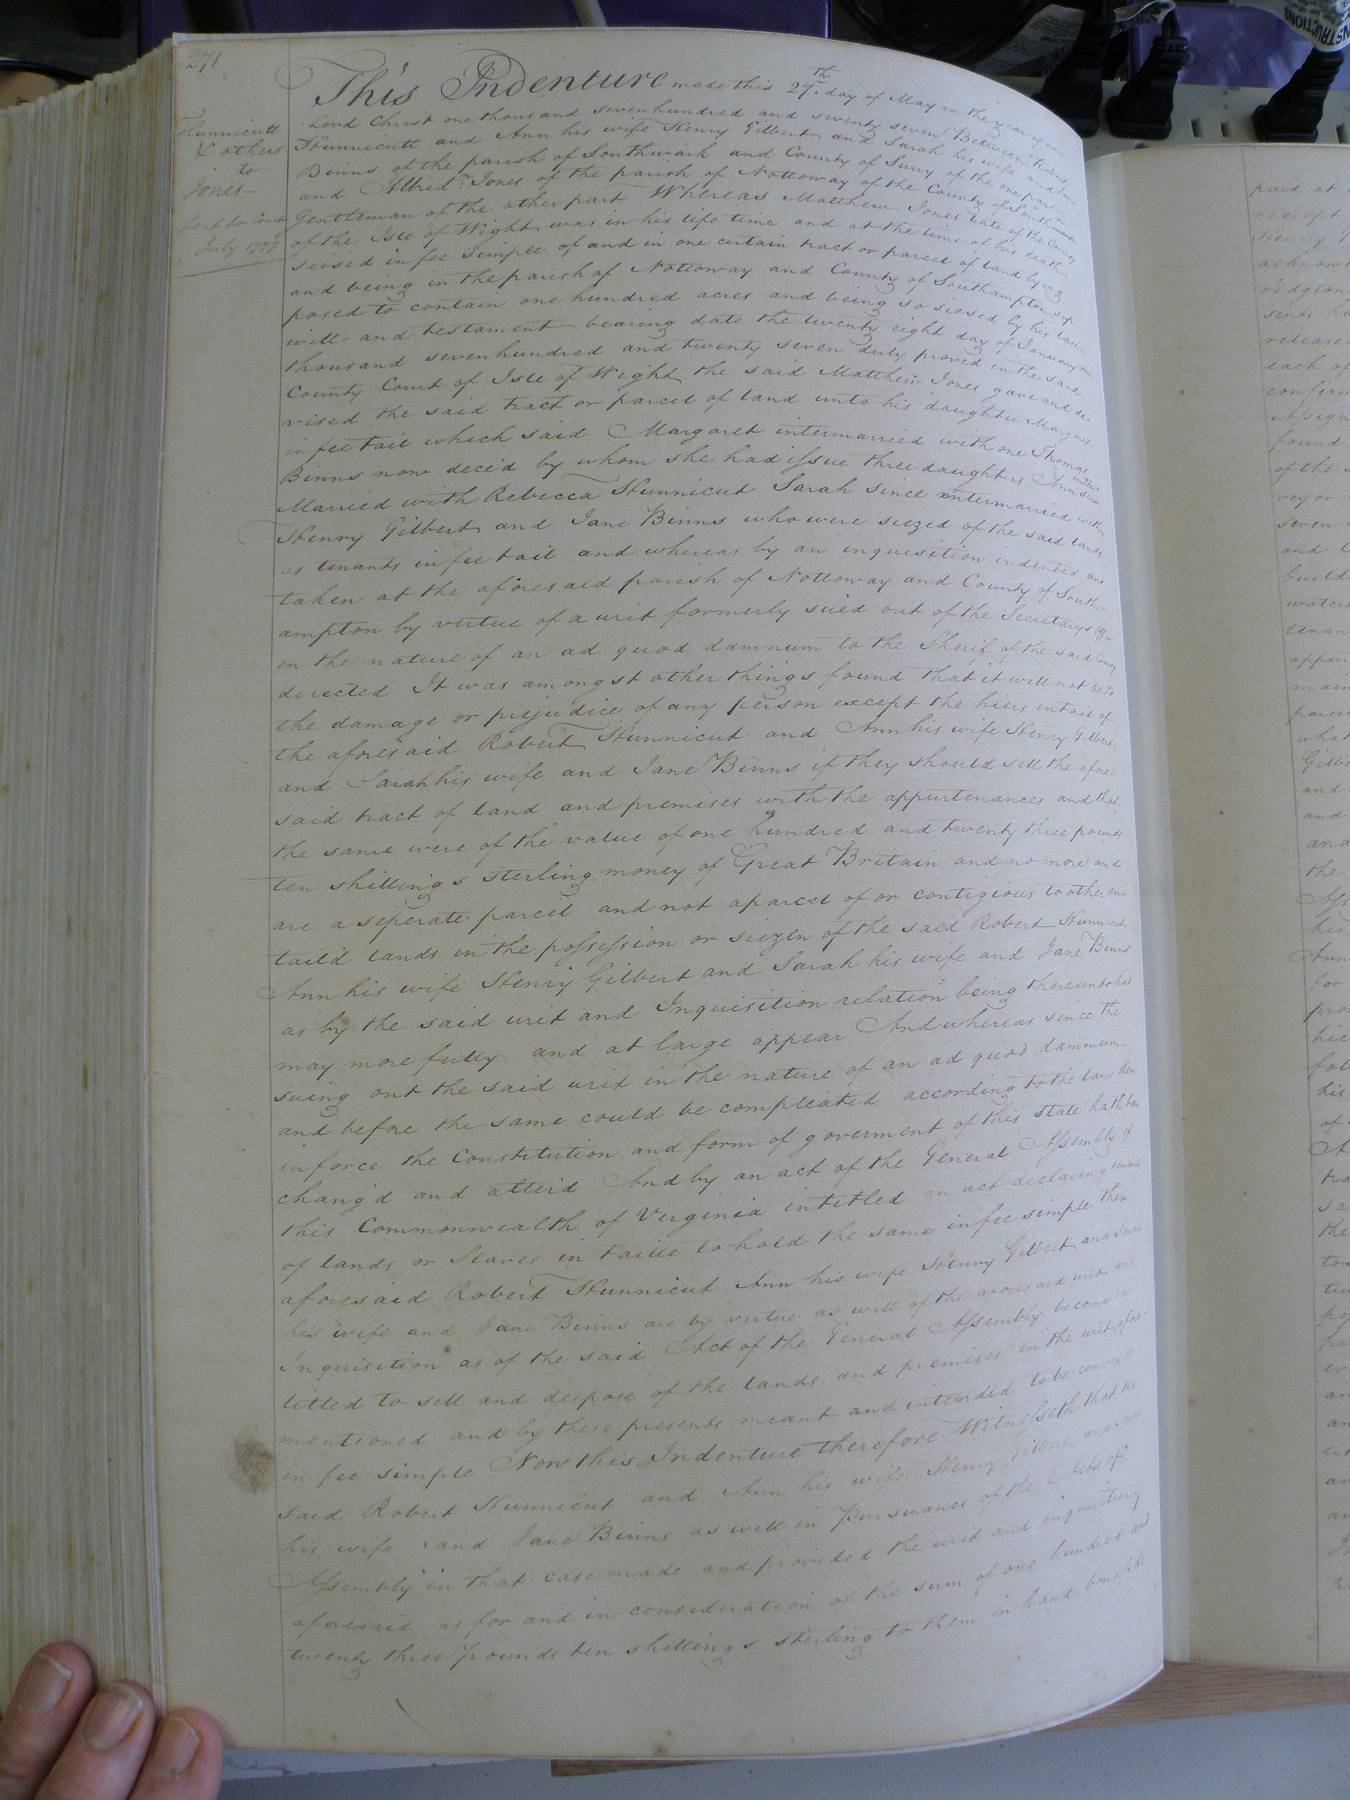 271
Hunnicutt
& others
to
Jones
July 1777
This Indenture made this 27th day of May in the year of our
Lord Christ one thousand sevenhundred and seventy seven Between Robert
Hunnicutt and Ann his wife Henry Gilbert and Sarah his wife and Jane
Binns of the parish of Southwark and County of Surry of the one part
and Albrid.n Jones of the parish of Nottoway of the County of Southampton
Gentleman of the other part Whereas Matthew Jones late of the County
of the Isle of Wight was in his life time and at the time of his death
seised in fee simple of and in one certain tract or parcel of land lying
and being in the parish of Nottoway and County of Southampton sup
posed to contain one hundred acres and being so siesed by his last
will and testament bearing date the twenty eight day of January one
thousand sevenhundred and twenty seven duly proved in the said
County Court of Isle of Wight the said Matthew Jones gave and de
vised the said tract or parcel of land unto his daughter Margaret
in fee tail which said Margaret intermarried with one Thomas
Binns now dece'd by whom she had issue three daughters Ann since inter
Married with Rebecca Hunnicut Sarah since intermarried with
Henry Gilbert and Jane Binns who were seized of the said lands
as tenants in fee tail and whereas by an inquisition indented and
taken at the aforesaid parish of Nottoway and County of South-
ampton by virtue of a writ formerly sued out of the Secretarys office
in the nature of an ad quod damnum to the Sherif of the said County
directed It was amongst other things found that it will not be to
the damage or prejudice of any person except the hiers intail of
the aforesaid Robert Hunnicut and Ann his wife Henry Gilbert
and Sarah his wife and Jane Binns if they should sell the afore
said tract of land and premises with the appurtenances and that
the same were of the value of one hundred and twenty three pounds
ten shillings sterling money of Great Britain and no more and
are a seperate parcel and not a parcel of or contigious to other en
tail'd lands in the possession or siezen of the said Robert Hunnicut
Ann his wife Henry Gilbert and Sarah his wife and Jane Binns
as by the said writ and Inquisition relation being thereunto had
may more fully and at large appear And whereas since the
suing out the said writ in the nature of an ad quod damnum
and before the same could be compleated according to the law then
in force the Constitution and form of goverment of this state hath been
chang'd and alterd And by an act of the General Assembly of
this Commonwealth of Virginia intitled an act declaring tenants
of lands or Slaves in tailie to hold the same in fee simple then
aforesaid Robert Hunnicut Ann his wife Henry Gilbert and Sarah
his wife and Jane Binns are by virtue as well of the aforesaid writ and
Inquisition as of the said Act of the General Assembly become in
titled to sell and despose of the lands and premises in the writ before
mentioned and by these presents meant and intended to be conveyed
in fee simple Now this Indenture therefore Witnesseth that the
said Robert Hunnicut and Ann his wife Henry Gilbert and
his wife and Jane Binns as well in Pursuance of the Acts of
Assembly in that case made and provided the writ and inquisition
aforesaid as for and in consideration of the sum of one hundred and
twenty three pounds ten shillings sterling to them in hand
paid at
reciept
Henry
acknow
sents
release
each of
confirm
Assign
found
of the
vey or
seven
and
build
water
tenan
appur
main
parce
what
Gilbe
and
and
and
the
his
Ann
for
pro
hie
fol
his
of